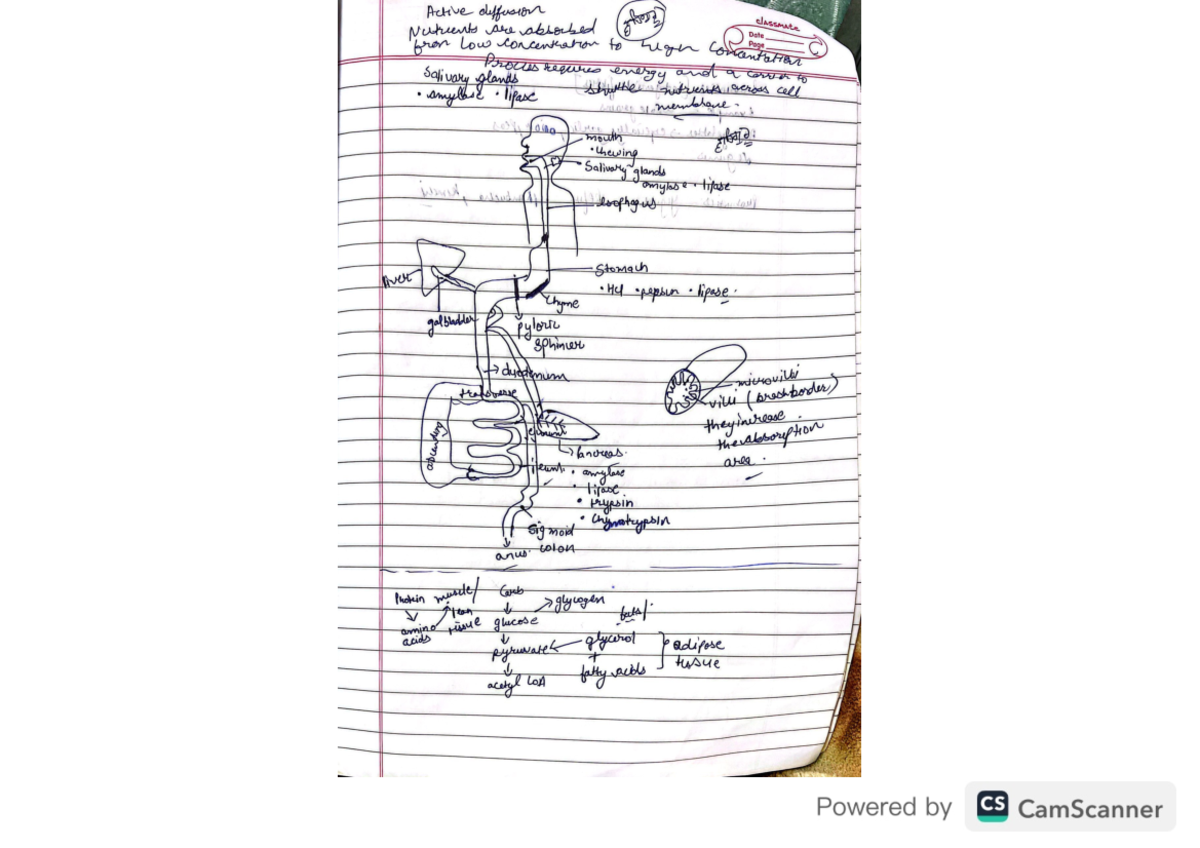 Active diffusion
classmate
Date
Page
Nutrients are absorbed
from Low concentration to high concentration
Process requires energy and a carrier to
shuttle nutrients across cell
membrane.
Salivary glands
• amylase • lipase
mouth
• chewing
Salivary glands
amylase • lipase
esophagus
liver
Stomach
• Hcl • pepsin • lipase.
chyme
gallbladder
pyloric
sphincter
duodenum
transverse
ascending
jejunum
ileum
microvilli
villi (brushborder)
they increase
the absorption
area.
Pancreas.
• amylase
• lipase
• trypsin
• chymotrypsin
Sigmoid
colon
anus.
Protein muscle/
lean
tissue
amino
acids
Carb
glucose
glycogen
pyruvate
acetyl CoA
fats/
glycerol
+
fatty acids
adipose
tissue
Powered by CS CamScanner